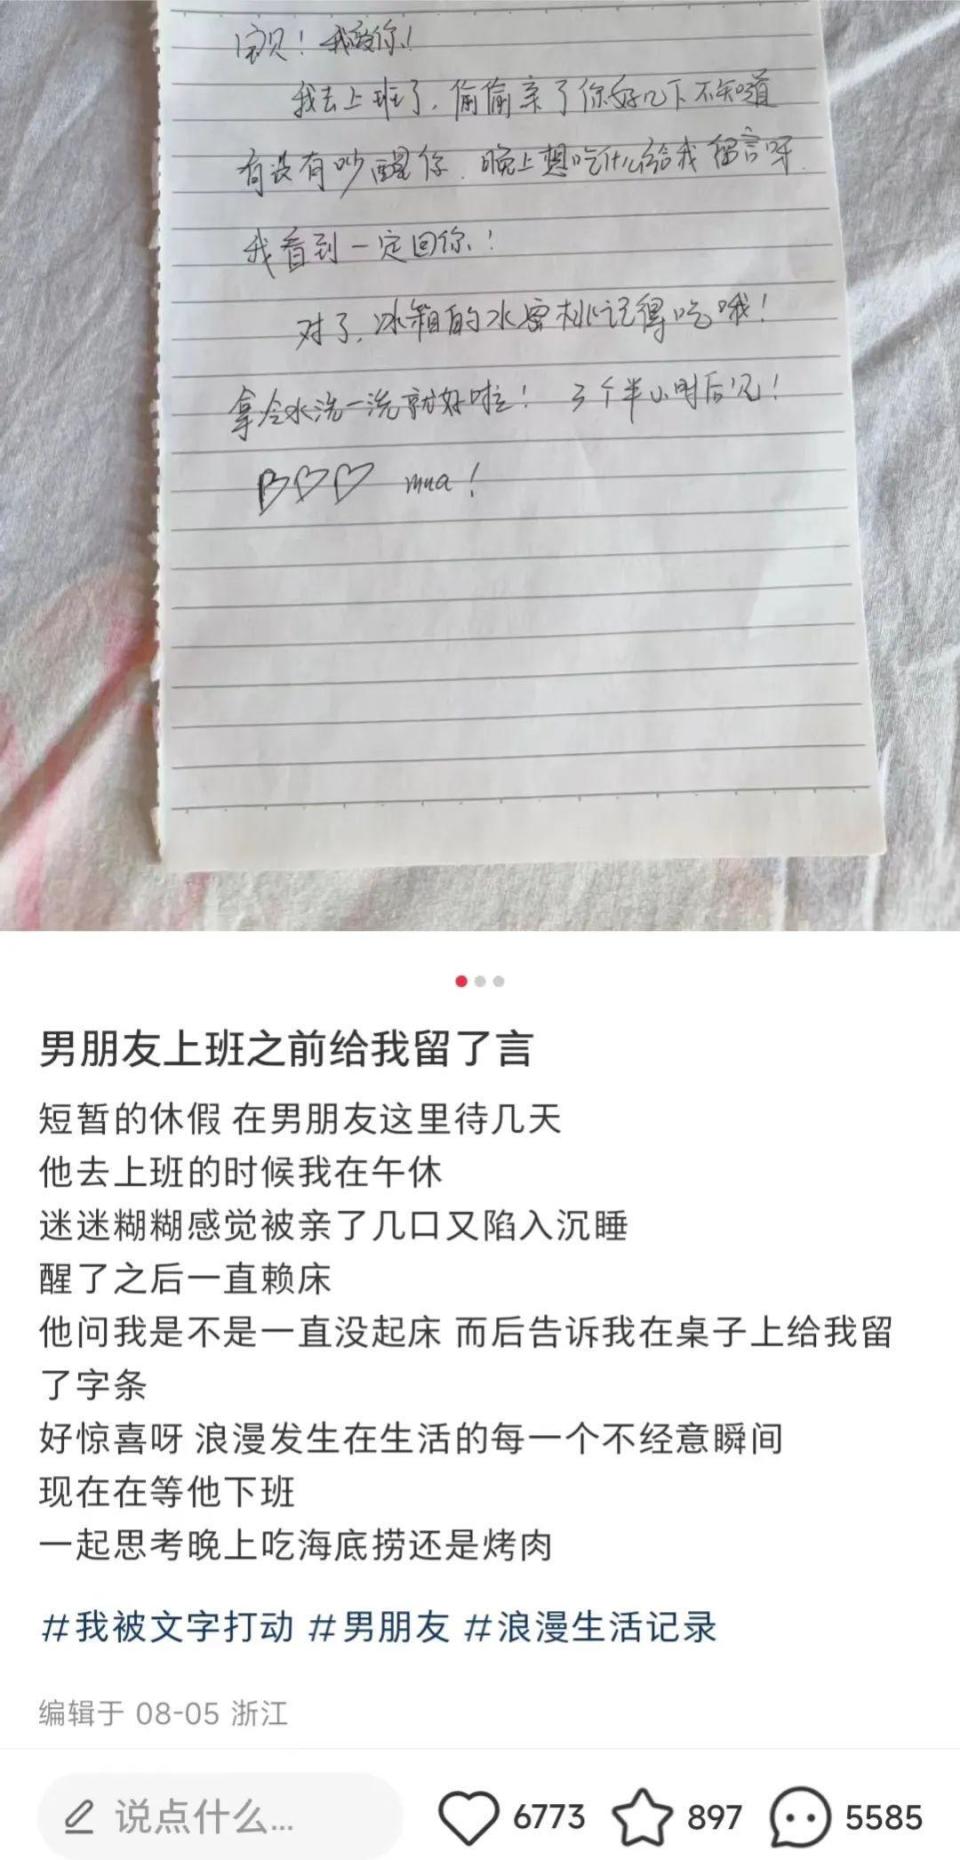 宝贝！我爱你！
我去上班了，偷偷亲了你好几下不知道
有没有吵醒你．晚上想吃什么给我留言呀．
我看到一定回你！
对了，冰箱的水蜜桃记得吃哦！
拿冷水洗一洗就好啦！ 3个半小时后见！
mua！
男朋友上班之前给我留了言
短暂的休假 在男朋友这里待几天
他去上班的时候我在午休
迷迷糊糊感觉被亲了几口又陷入沉睡
醒了之后一直赖床
他问我是不是一直没起床 而后告诉我在桌子上给我留
了字条
好惊喜呀 浪漫发生在生活的每一个不经意瞬间
现在在等他下班
一起思考晚上吃海底捞还是烤肉
#我被文字打动 #男朋友 #浪漫生活记录
编辑于 08-05 浙江
说点什么... 6773 897 5585